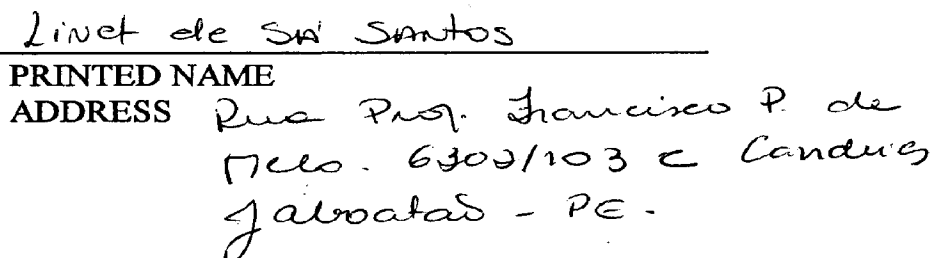 Linet de SÁ SANTOS
PRINTED NAME
ADDRESS Rua Prof. Francisco P. de
Melo. 6302/103 C Candeias
Jaboatão - PE.